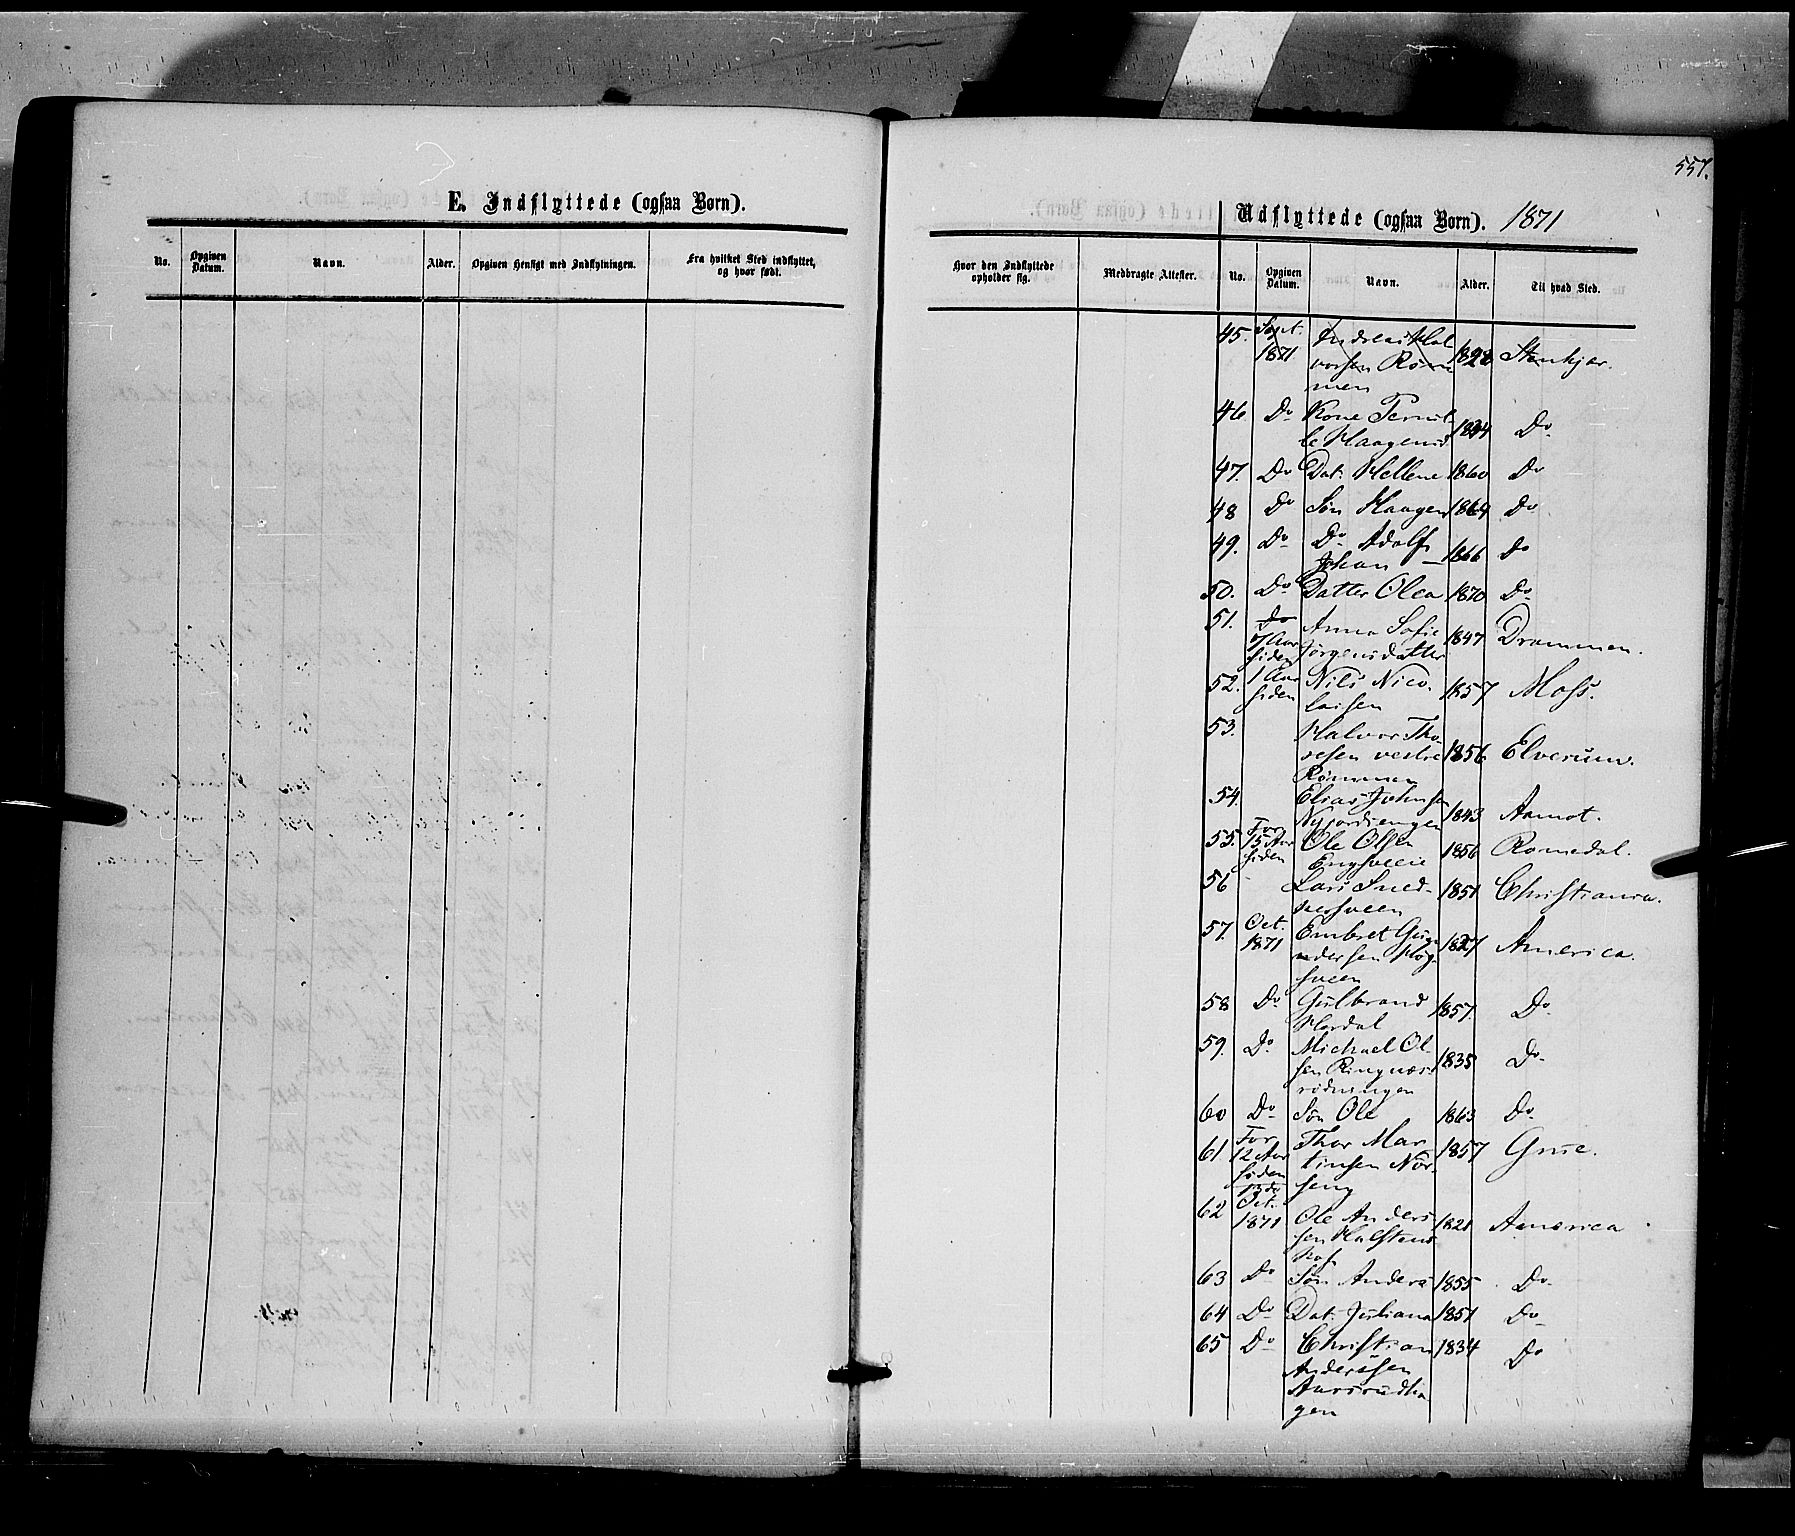 557.
E. Indflyttede (ogsaa Børn).
No.
Opgiven Datum.
Navn.
Alder.
Opgiven Hensigt med Indflytningen.
Fra hvilket Sted indflyttet, og hvor født.
Hvor den Indflyttede opholder sig.
Medbragte Attester.
Udflyttede (ogsaa Børn). 1871
No.
Opgiven Datum.
Navn.
Alder.
Til hvad Sted.
45. Sept. 1871 Andreas Hal
vorsen Røm
men 1828 Stenkjær.
46 Do Kone Pernil
le Haagensd 1834 Do
47. Do Dat. Hellene 1860 Do
48 Do Søn Haagen 1864 Do
49. Do Do Adolf
Johan 1866 Do
50. Do Datter Olea 1870 Do
51. Aar siden Anna Sofie
Jørgensdatter 1847 Drammen.
52. 1 Aar siden Nils Nico
laisen 1857 Moss.
53. Halvor Tho
resen vestre
Rømmen 1856 Elverum.
54. Elias Johnsen
Nyjordsengen 1843 Aamot.
55. For 15 Aar siden Ole Olsen
1856 Romedal.
56 Lars Sned
kersveen 1851 Christiania.
57. Oct. 1871 Embret Gun
dersen Høg
sveen 1827 America.
58 Do Gulbrand
Hordal 1857. Do
59. Do Michael Ol
sen Ringnæs
rødningen 1835 Do
60 Do Søn Ole 1863 Do
61 For 12 Aar siden Thor Mar
tinsen Nor
seng 1857 Grue.
62 13 do Oct. 1871 Ole Anders
sen Halstens
hof 1821 America
63 Do Søn Anders 1855 Do
64 Do Dat. Juliana 1851 Do
65 Do Christian
Anderssen
Aursrudha
gen 1834 Do